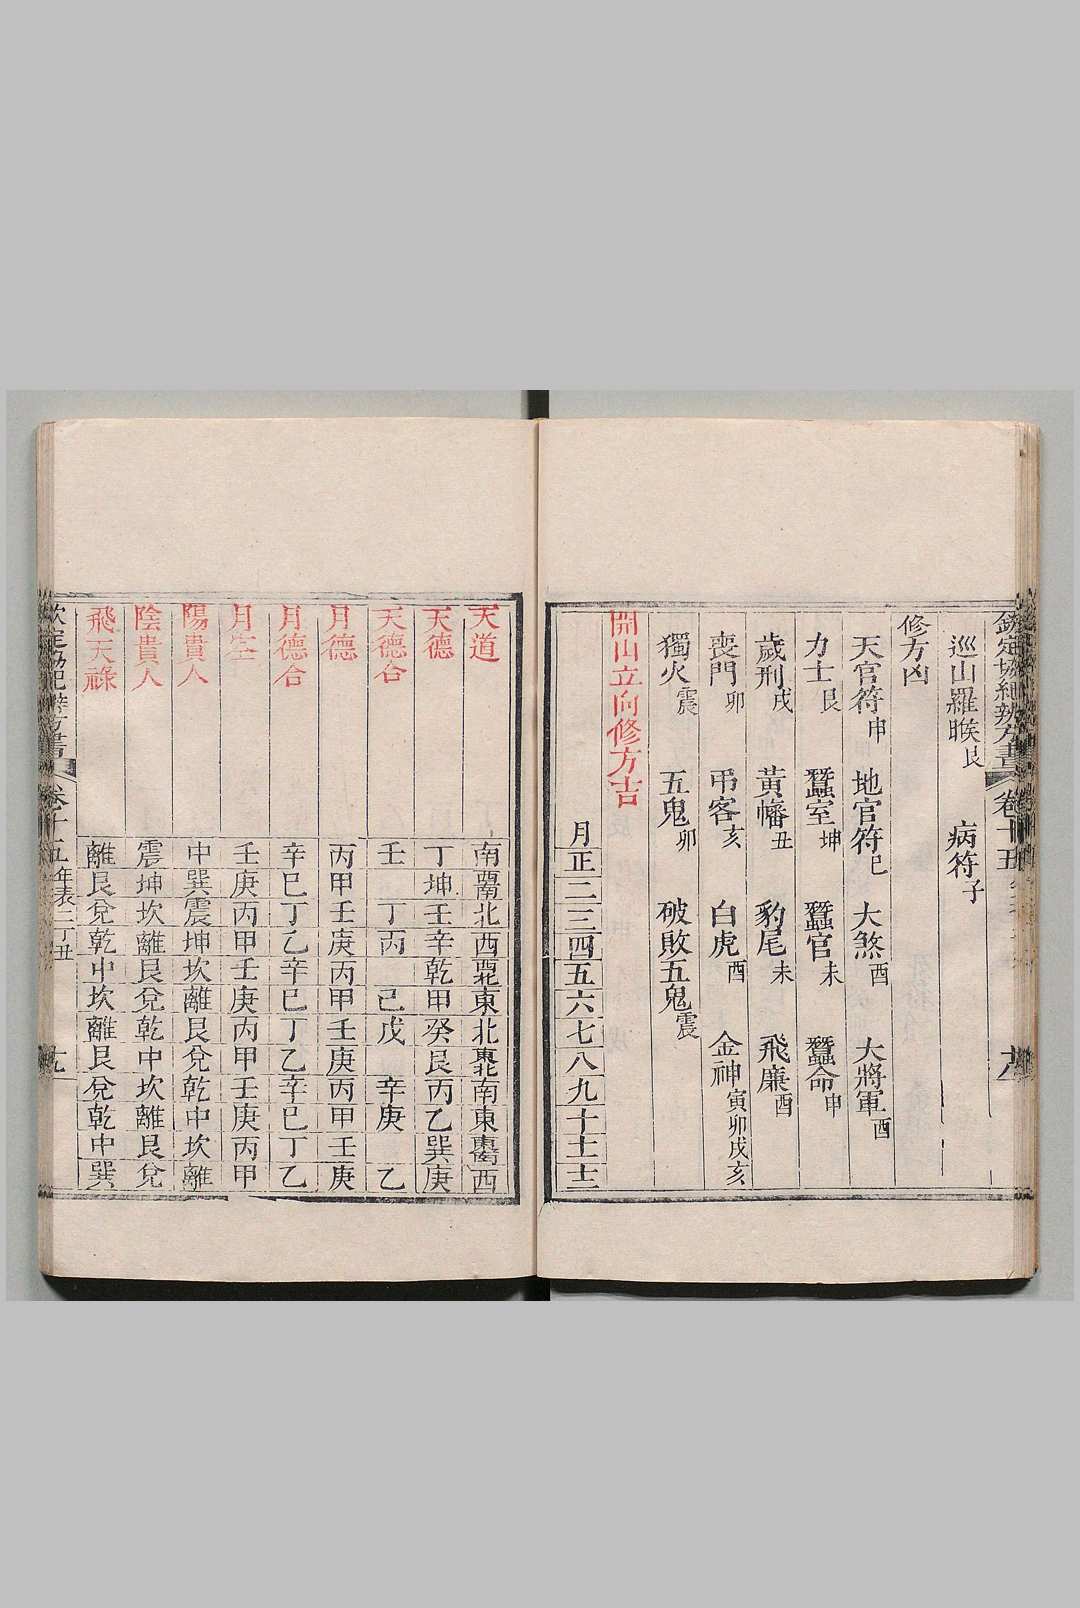 欽定協紀辨方書 卷十五
巡山羅睺艮 病符子
修方凶
天官符申 地官符巳 大煞酉 大將軍酉
力士艮 蠶室坤 蠶官未 蠶命申
歲刑戌 黃幡丑 豹尾未 飛廉酉
喪門卯 弔客亥 白虎酉 金神寅卯戌亥
獨火震 五鬼卯 破敗五鬼震
開山立向修方吉
月正二三四五六七八九十十一十二
天道 南西南北西西北東北東北南東東南西
天德 丁坤壬辛乾甲癸艮丙乙巽庚
天德合 壬 丁丙 己戊 辛庚 乙
月德 丙甲壬庚丙甲壬庚丙甲壬庚
月德合 辛巳丁乙辛巳丁乙辛巳丁乙
月空 壬庚丙甲壬庚丙甲壬庚丙甲
陽貴人 中巽震坤坎離艮兌乾中坎離
陰貴人 震坤坎離艮兌乾中坎離艮兌
飛天祿 離艮兌乾中坎離艮兌乾中巽
欽定協紀辨方書 卷十五 年表二丁丑 九